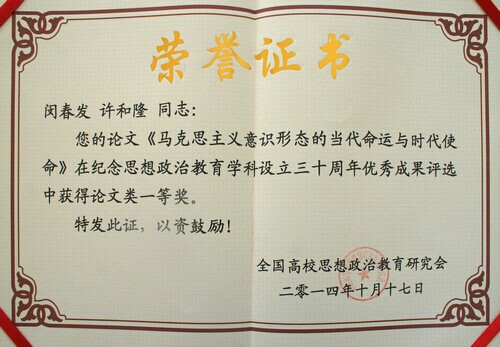 荣誉证书
闵春发 许和隆 同志：
您的论文《马克思主义意识形态的当代命运与时代使
命》在纪念思想政治教育学科设立三十周年优秀成果评选
中获得论文类一等奖。
特发此证，以资鼓励！
全国高校思想政治教育研究会
二〇一四年十月十七日